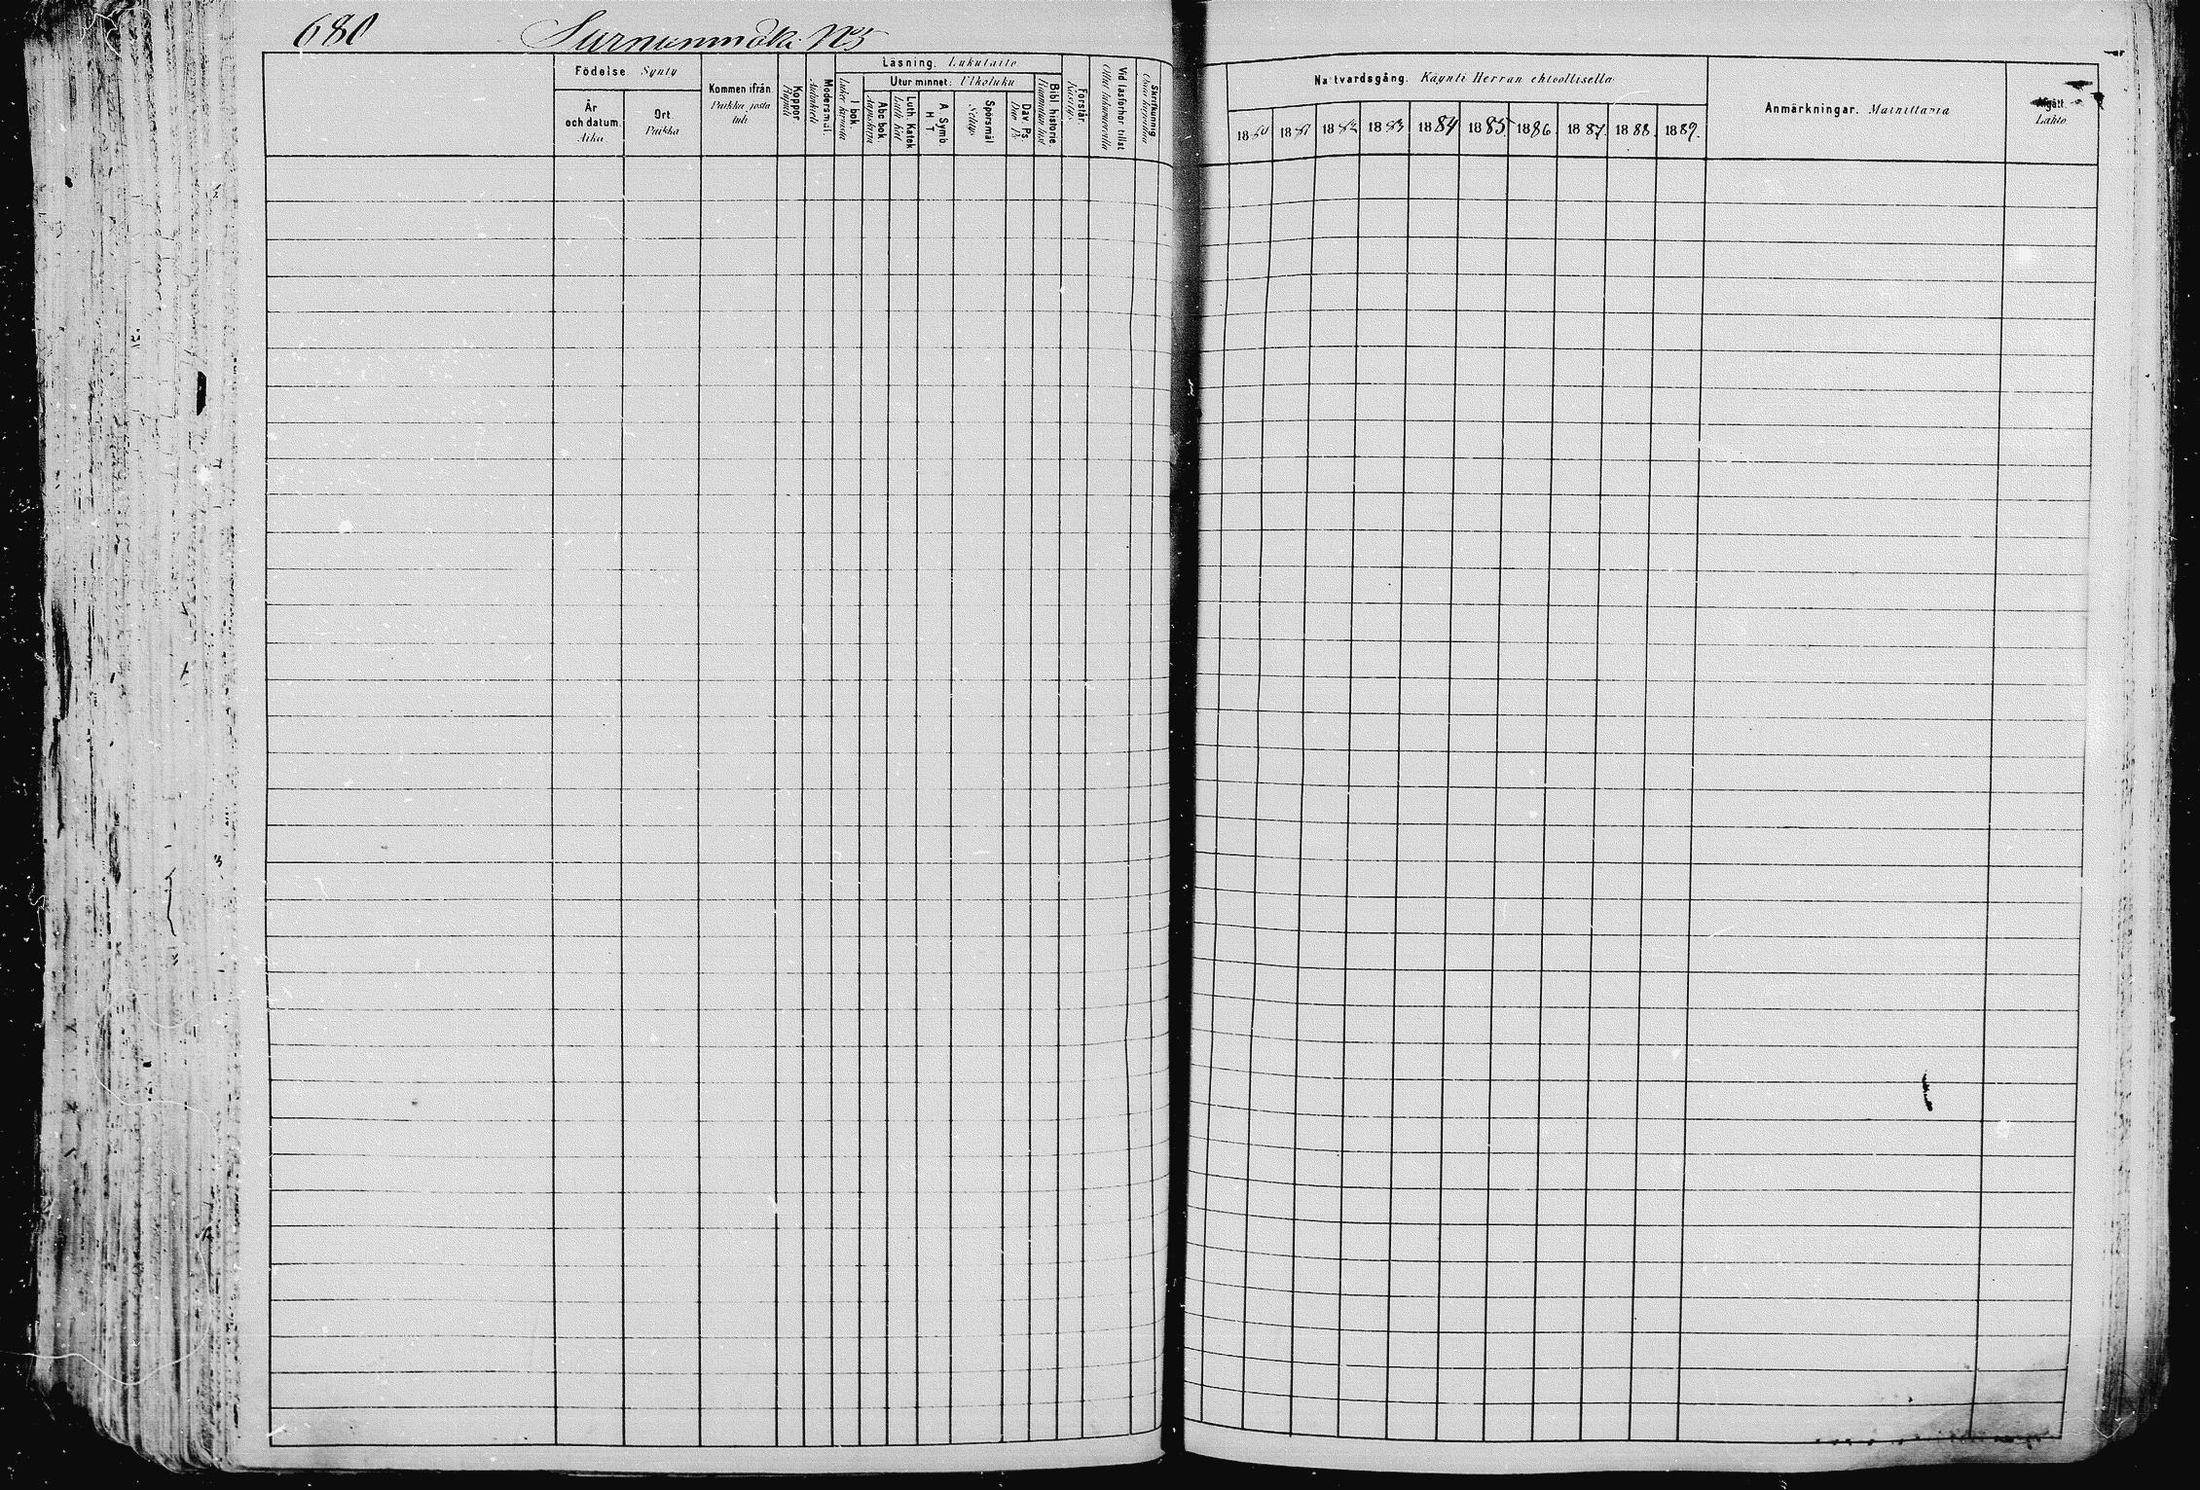 680 Surnunmäki No 5
Födelse Synty
År och datum. Aika
Ort. Paikka
Kommen ifrån. Paikka, josta tuli
Koppor Rupuli
Modersmål Äidinkieli
Läsning. Lukutaito
I bok
Utur minnet: Ulkoluku
Abc bok. Aapiskirja
Luth. Katek Luth. Kat.
A. Symb. H T
Spörsmål Selitys
Dav. Ps. Dav. Ps.
Bibl. historie.
Förstår. Käsitys
Vid läsförhör tillst
Skrifkunnig
Nattvardsgång. Käynti Herran ehtoollisella
1880 1881 1882 1883 1884 1885 1886 1887. 1888. 1889.
Anmärkningar. Mainittavia
Afgått. Lähtö